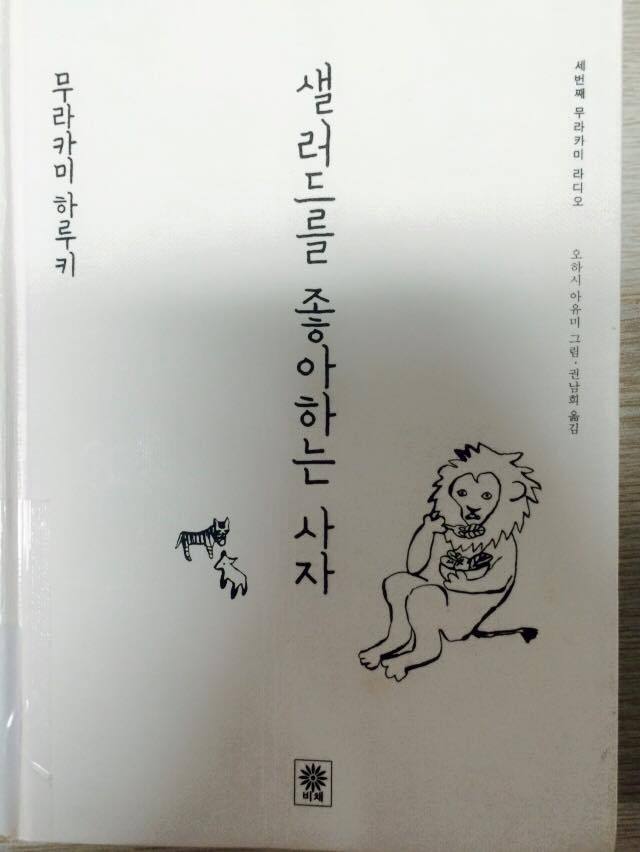 세번째 무라카미 라디오
오하시 아유미 그림 · 권남희 옮김
샐러드를 좋아하는 사자
무라카미 하루키
비채